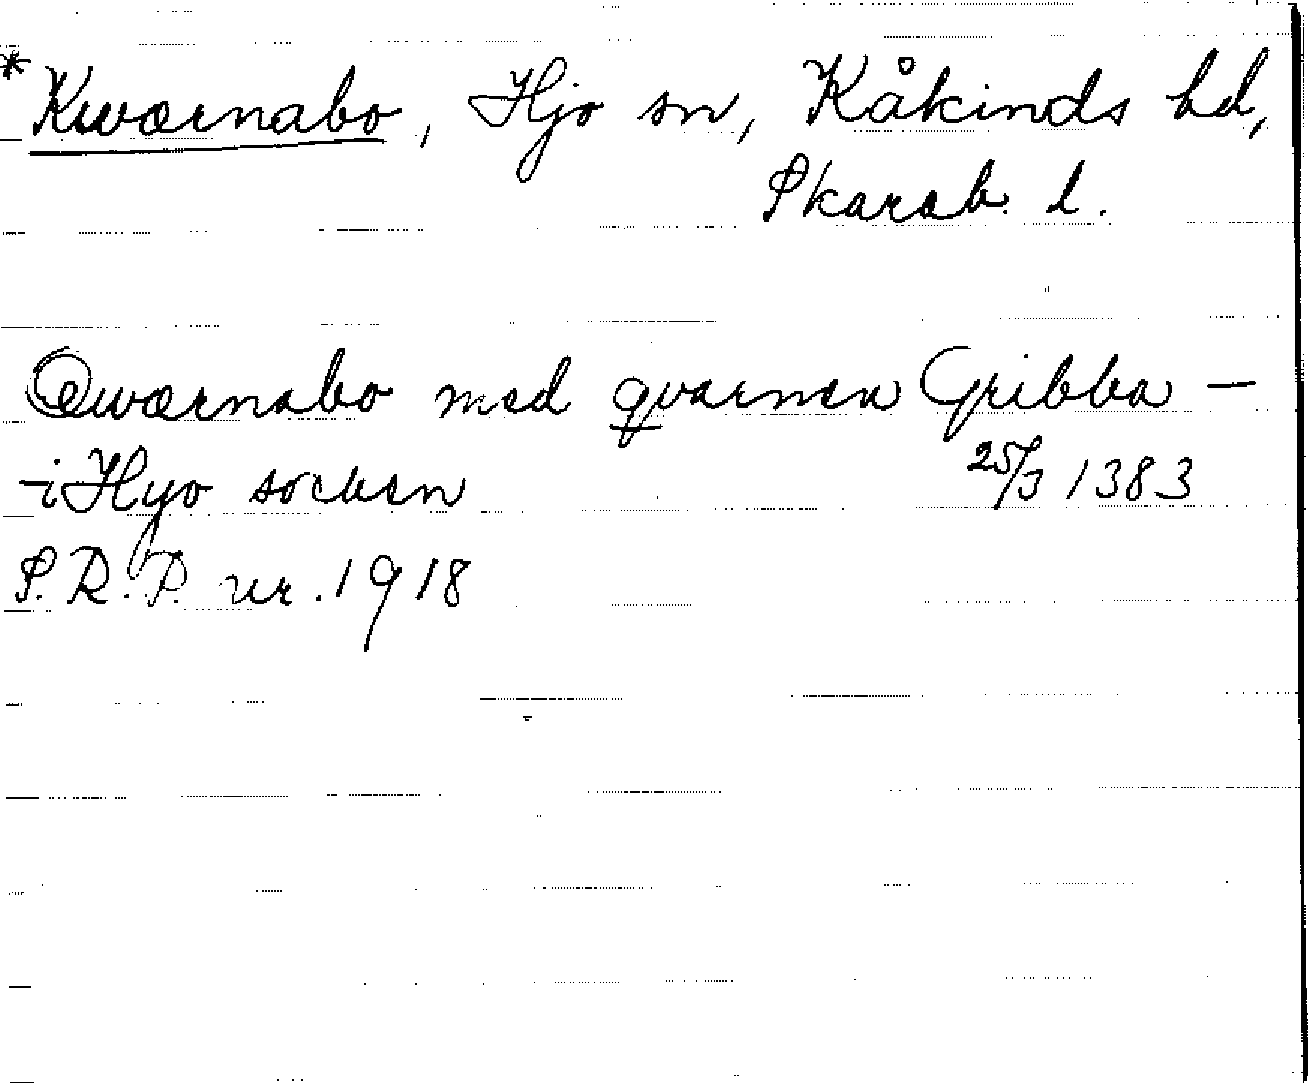 *Kwærnabo, Hjo sn, Kåkinds hd,
Skarab. l.
Qwærnabo med qvarnen Gribba —
- i Hyo socken 25/3 1383
S.R.P. nr. 1918